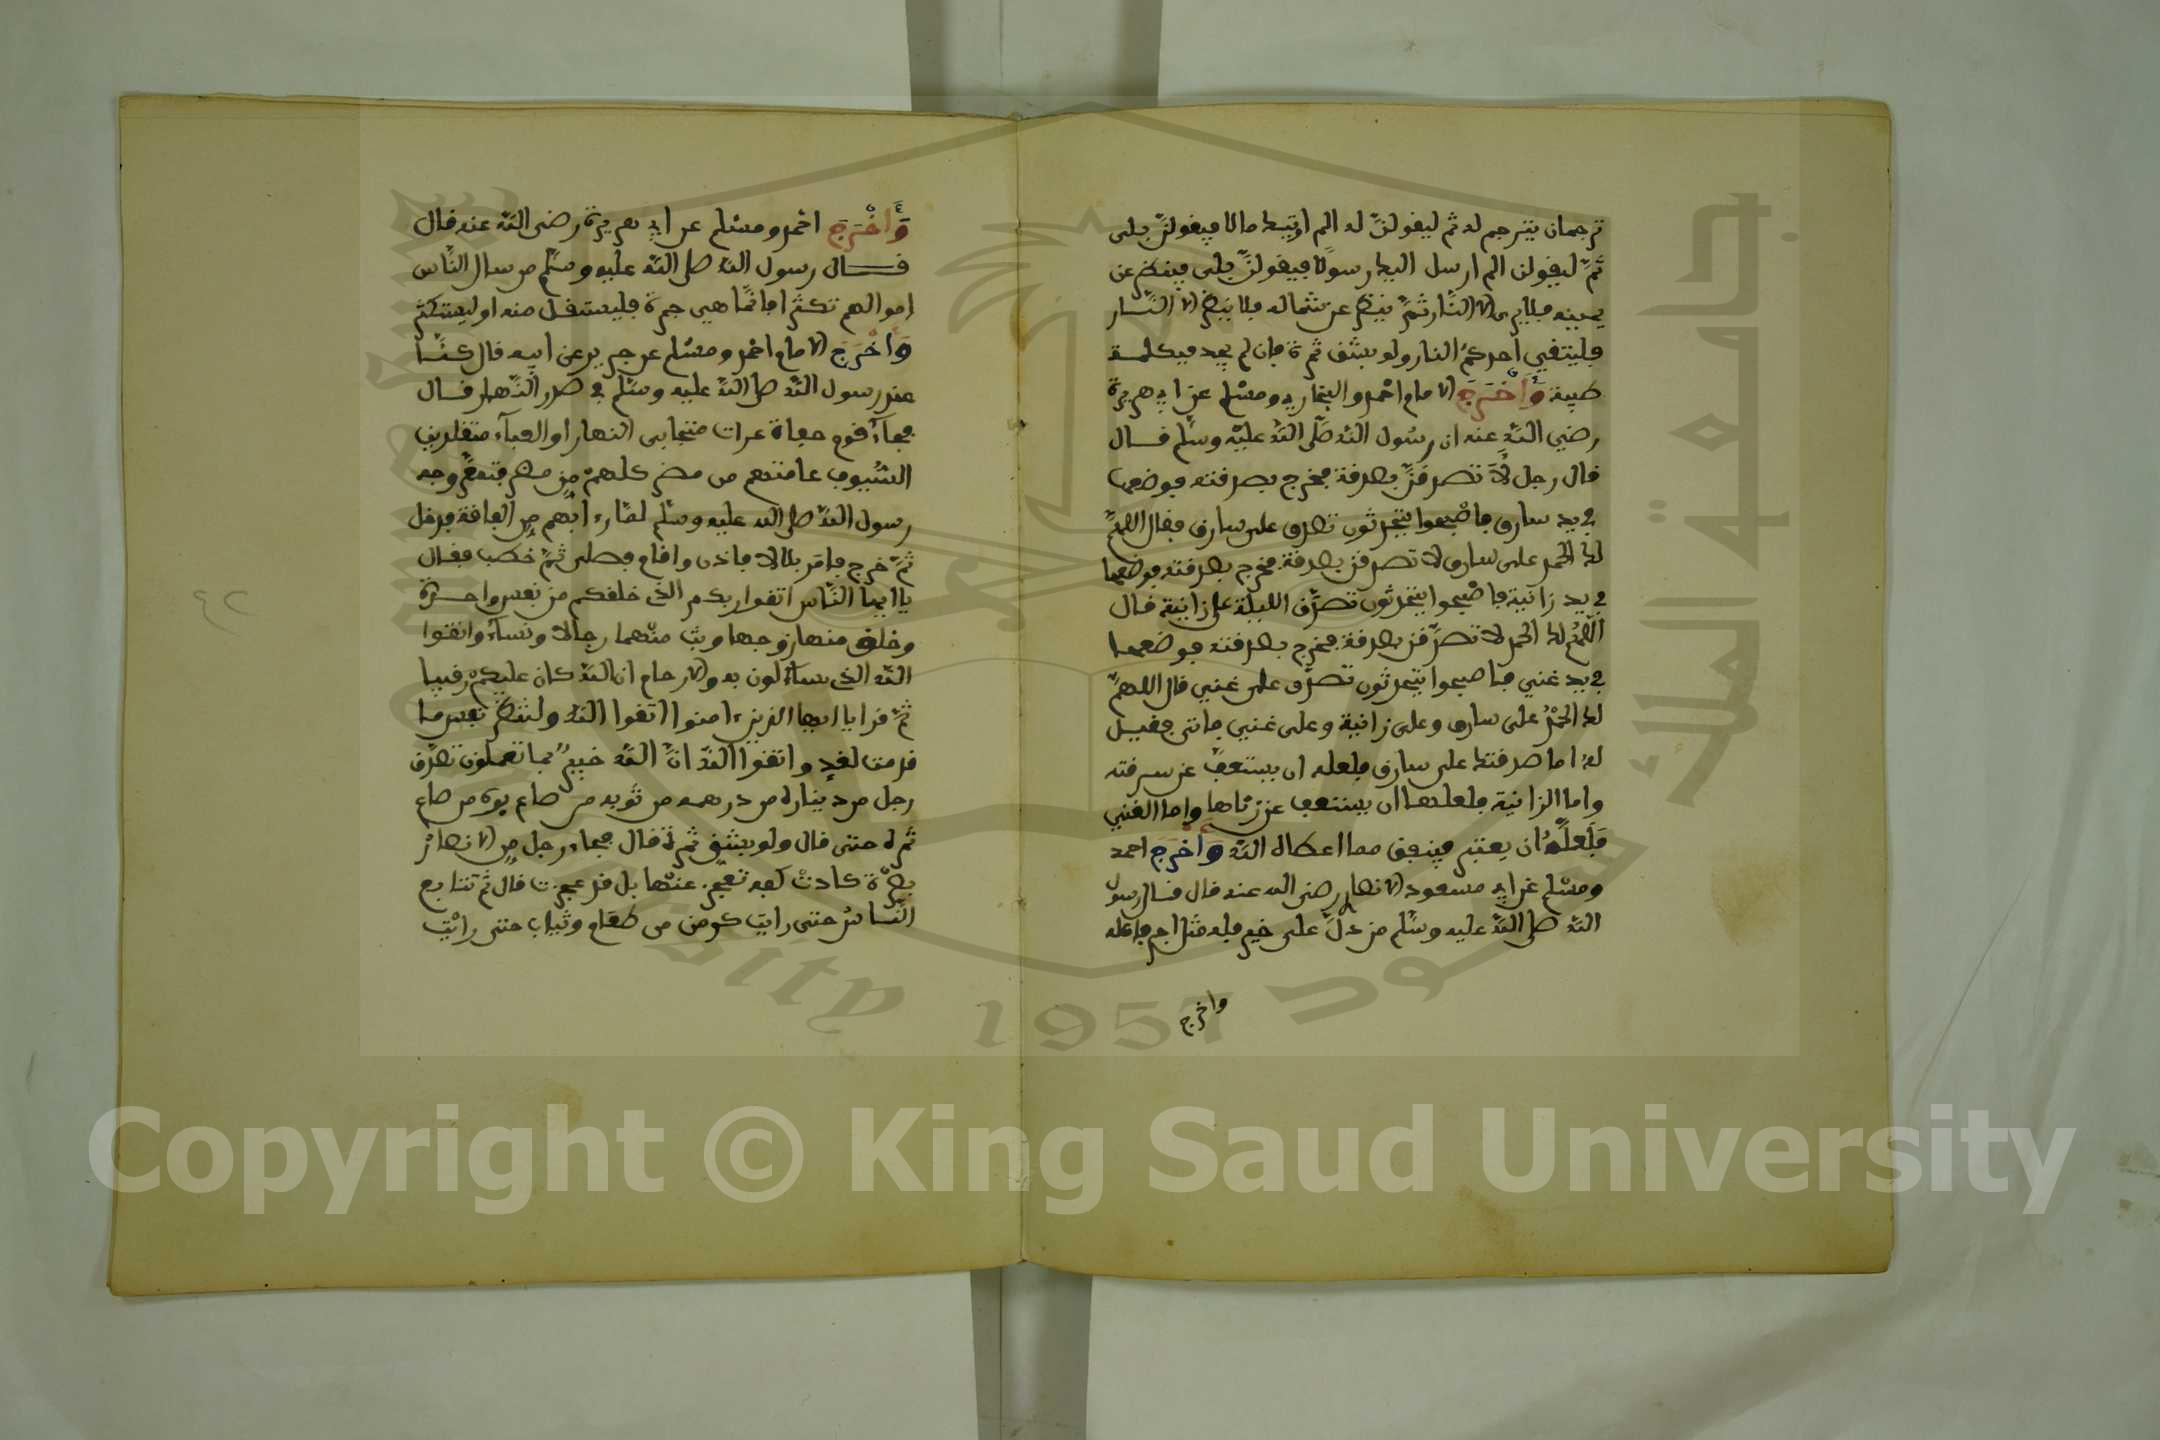 ترجمان يترجم له ثم ليقولن له الم اوتيك مالا فيقولن بلى
ثم ليقولن الم ارسل اليك رسولا فيقولن بلى فينظر عن
يمينه فلا يرى الا النار ثم ينظر عن شماله فلا ينظر الا النار
فليتقي احدكم النار ولو بشق ثمرة فان لم يجد فبكلمة
طيبة وأخرج الامام احمد والبخاري ومسلم عن ابي هريرة
رضي الله عنه ان رسول الله صلى الله عليه وسلم قال
قال رجل لأتصدقن بصدقة فخرج بصدقته فوضعها
في يد سارق فاصبحوا يتحدثون تصدق على سارق فقال اللهم
لك الحمد على سارق لاتصدقن بصدقة فخرج بصدقته فوضعها
في يد زانية فاصبحوا يتحدثون تصدق الليلة على زانية قال
اللهم لك الحمد لاتصدقن بصدقة فخرج بصدقته فوضعها
في يد غني فاصبحوا يتحدثون تصدق على غني قال اللهم
لك الحمد على سارق وعلى زانية وعلى غني فاتى فقيل
له اما صدقتك على سارق فلعله ان يستعف عن سرقته
واما الزانية فلعلها ان يستعف عن زناها واما الغني
فلعله ان يعتبر فينفق مما اعطاه الله وأخرج احمد
ومسلم عن ابي مسعود الانصار رضى الله عنه قال قال رسول
الله صلى الله عليه وسلم من دل على خير فله مثل اجر فاعله
واخرج
وأخرج احمد ومسلم عن ابي هريرة رضى الله عنه قال
قال رسول الله صلى الله عليه وسلم من سال الناس
اموالهم تكثرا فانما هي جمرة فليستقل منه او ليستكثر
وأخرج الامام احمد ومسلم عن جرير عن ابيه قال كنا
عند رسول الله صلى الله عليه وسلم في صدر النهار قال
فجاء قوم حفاة عراة مجتابى النمار او العباء متقلدين
السيوف عامتهم من مضر كلهم من مضر فتمعر وجه
رسول الله صلى الله عليه وسلم لما رءا بهم من الفاقة فدخل
ثم خرج فامر بلالا فاذن واقام فصلى ثم خطب فقال
ياايها الناس اتقوا ربكم الذي خلقكم من نفس واحدة
وخلق منها زوجها وبث منهما رجالا ونساء واتقوا
الله الذي تساءلون به والارحام ان الله كان عليكم رقيبا
ثم قرا ياايها الذين ءامنوا اتقوا الله ولتنظر نفس ما
قدمت لغد واتقوا الله ان الله خبير بما تعملون تصدق
رجل من ديناره من درهمه من ثوبه من صاع بره من صاع
ثمره حتى قال ولو بشق ثمرة قال فجاء رجل من الانصار
بصرة كادت كفه تعجز عنها بل قد عجزت قال ثم تتابع
الناس حتى رايت كومين من طعام وثياب حتى رايت
٤٢
جامعة الملك سعود
1957
Copyright © King Saud University